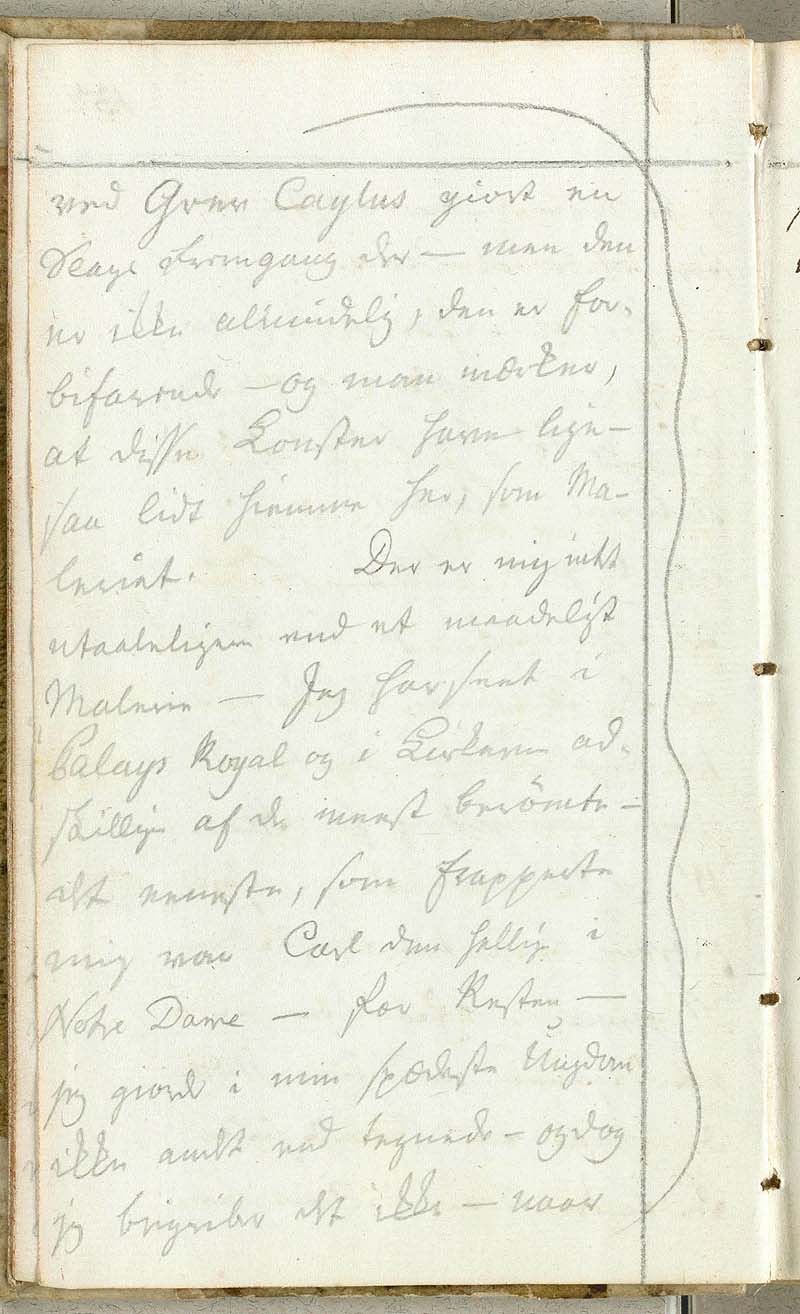 ved Grev Caylus giort en
Slags Fremgang der — men den
er ikke almindelig, den er for-
bifarende — og man mærker,
at disse Konster have lige-
saa lidt hiemme her, som Ma-
leriet. Der er mig intet
utaaleligere end et maadeligt
Malerie — Jeg har seet i
Palays Royal og i Kirkerne ad-
skillige af de meest berömte —
det eeneste, som frapperte
mig var Carl den hellige i
Notre Dame — for Resten —
jeg giorde i min spædeste Ungdom
ikke andet end tegnede — og dog
jeg begriber det ikke — naar